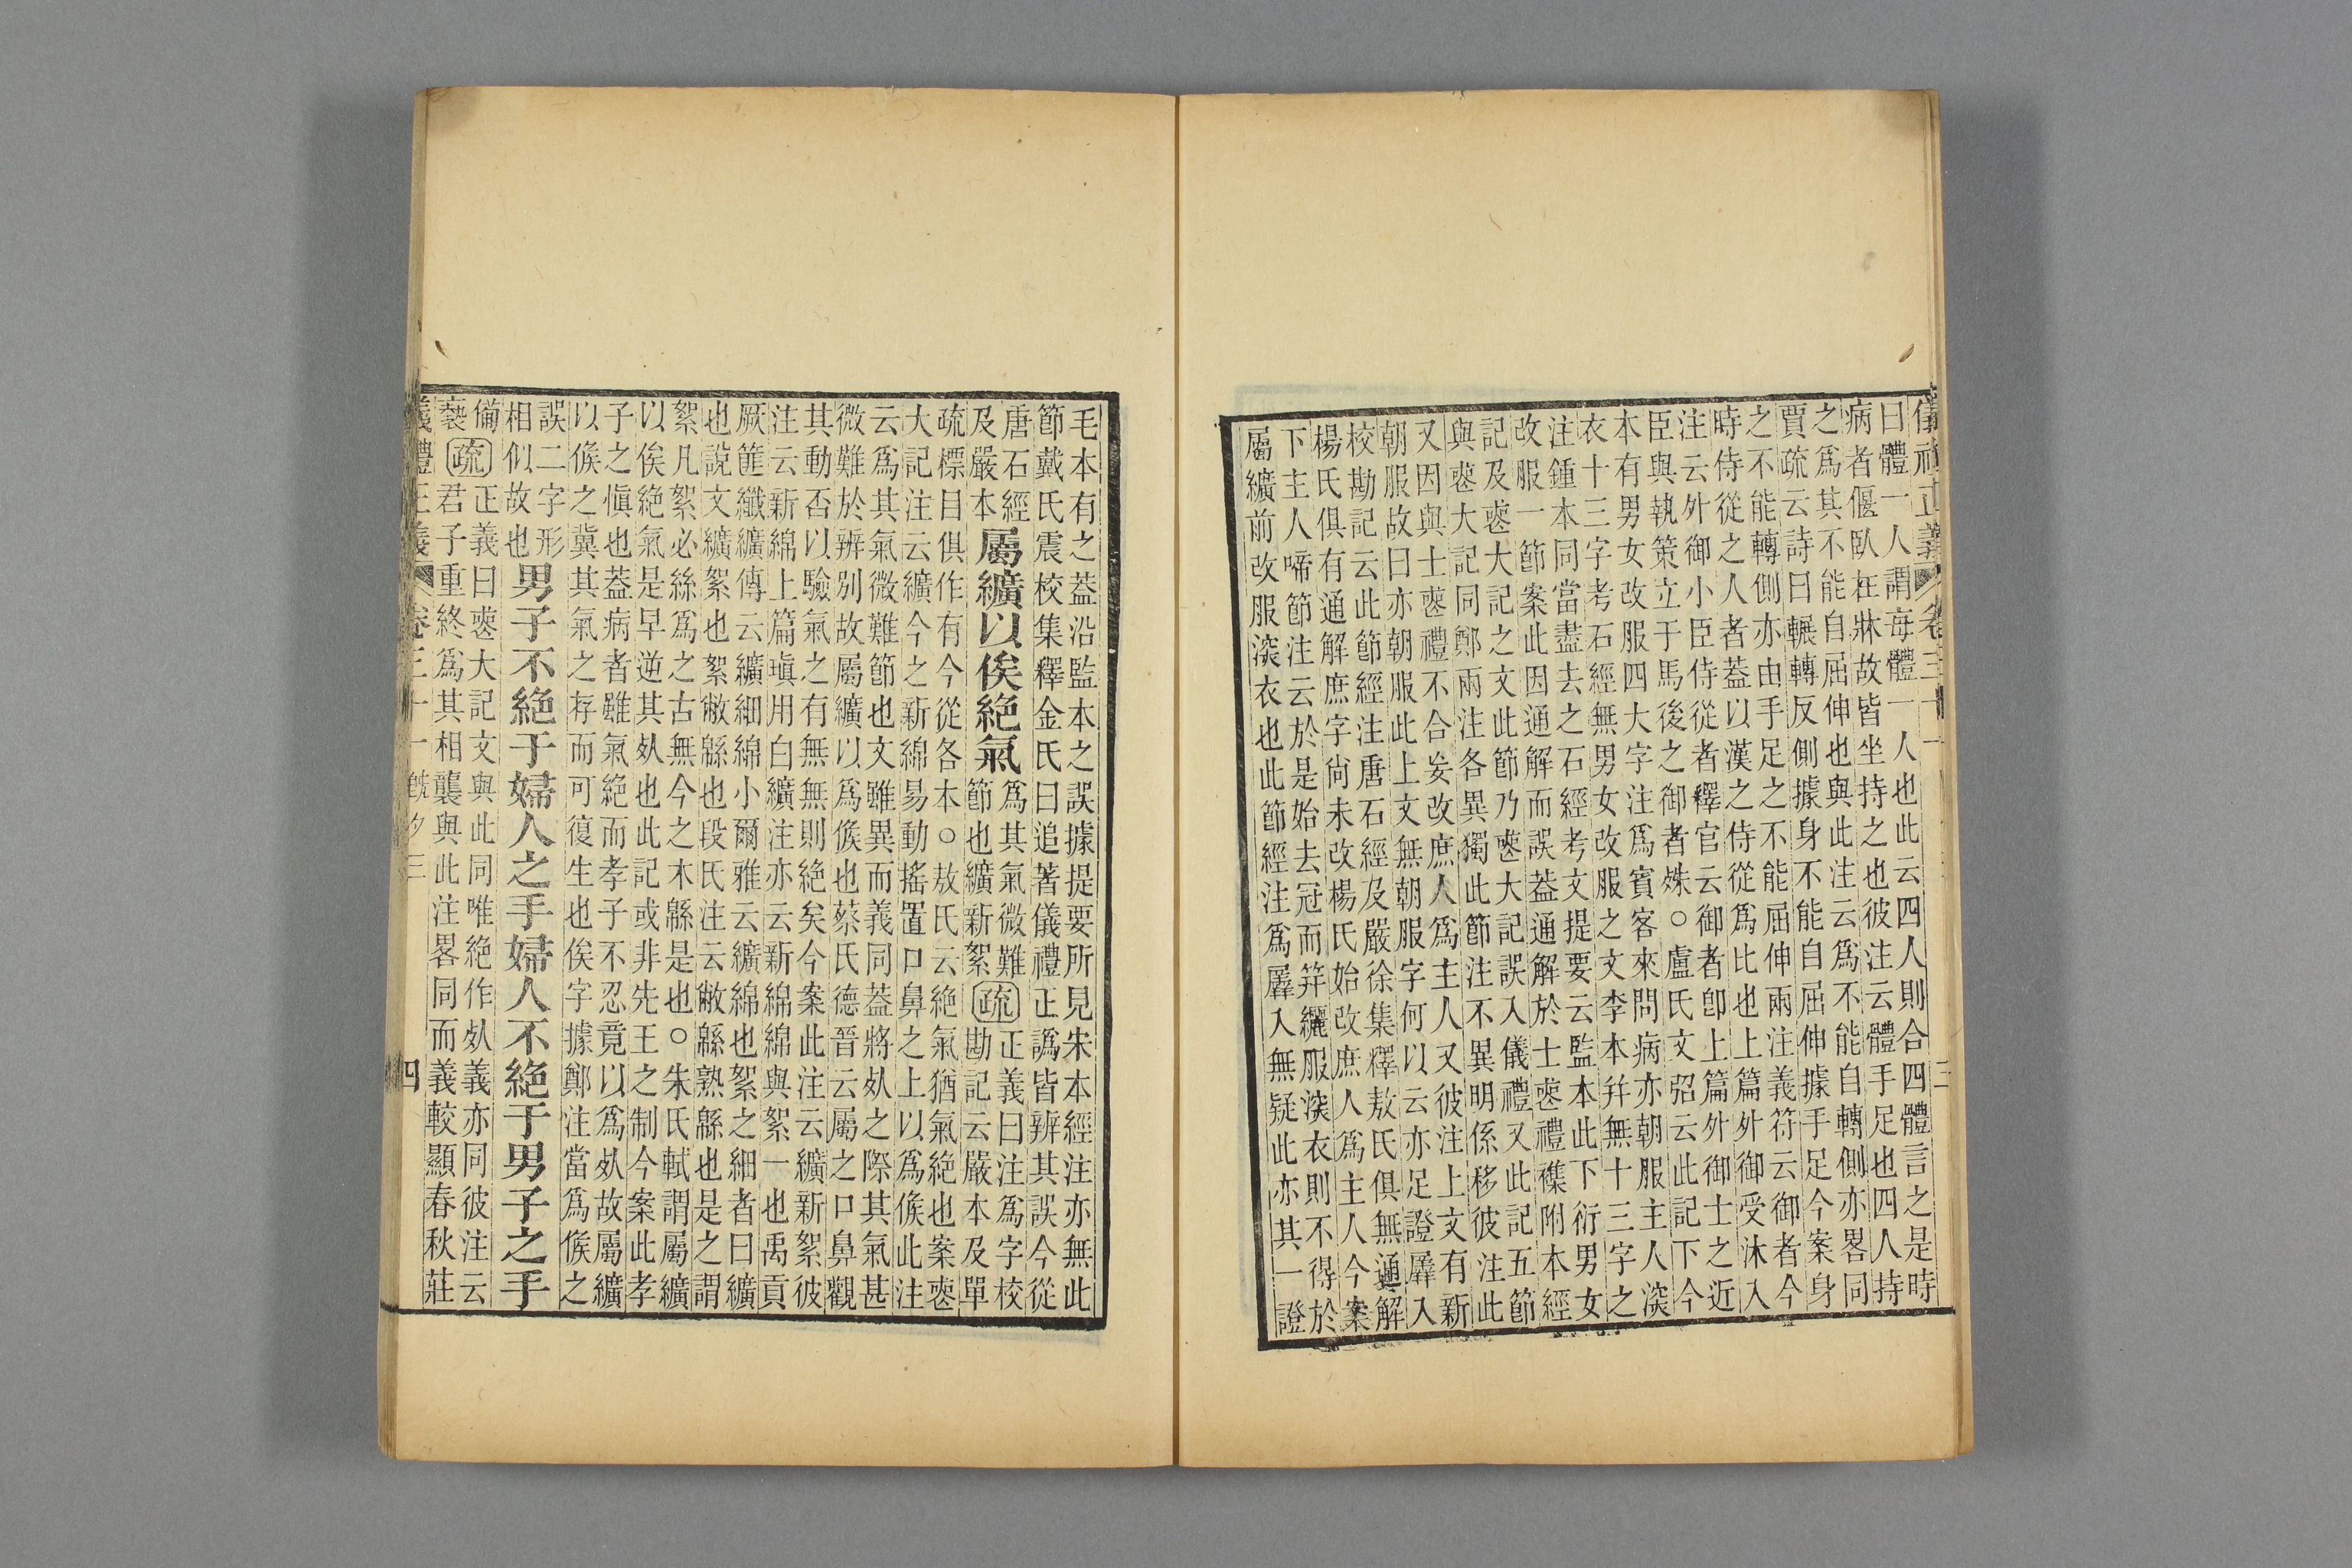 儀禮正義 卷三十一 三
曰體一人謂每體一人也此云四人則合四體言之是時
病者偃臥在牀故皆坐持之也彼注云體手足也四人持
之爲其不能自屈伸也與此注云爲不能自轉側亦畧同
賈疏云詩曰輾轉反側據身不能自屈伸據手足今案身
之不能轉側亦由手足之不能屈伸兩注義符云御者今
時侍從之人者蓋以漢之侍從爲比也上篇外御受沐入
注云外御小臣侍從者釋官云御者卽上篇外御士之近
臣與執策立于馬後之御者殊○盧氏文弨云此記下今
本有男女改服四大字注爲賓客來問病亦朝服主人深
衣十三字考石經無男女改服之文李本幷無十三字之
注鍾本同當盡去之石經考文提要云監本此下衍男女
改服一節案此因通解而誤蓋通解於士喪禮襍附本經
記及喪大記之文此節乃喪大記誤入儀禮又此記五節
與喪大記同鄭兩注各異獨此節注不異明係移彼注此
又因與士喪禮不合妄改庶人爲主人又彼注上文有新
朝服故曰亦朝服此上文無朝服字何以云亦足證羼入
校勘記云此節經注唐石經及嚴徐集釋敖氏俱無通解
楊氏俱有通解庶字尙未改楊氏始改庶人爲主人今案
下主人啼節注云於是始去冠而笄纚服深衣則不得於
屬纊前改服深衣也此節經注爲羼入無疑此亦其一證
毛本有之蓋沿監本之誤據提要所見朱本經注亦無此
節戴氏震校集釋金氏曰追著儀禮正譌皆辨其誤今從
唐石經
及嚴本
屬纊以俟絕氣
爲其氣微難
節也纊新絮疏
正義曰注爲字校
勘記云嚴本及單
疏標目俱作有今從各本○敖氏云絕氣猶氣絕也案喪
大記注云纊今之新綿易動搖置口鼻之上以爲候此注
云爲其氣微難節也文雖異而義同蓋將死之際其氣甚
微難於辨別故屬纊以爲候也蔡氏德晉云屬之口鼻觀
其動否以驗氣之有無無則絕矣今案此注云纊新絮彼
注云新綿上篇瑱用白纊注亦云新綿綿與絮一也禹貢
厥篚纖纊傳云纊細綿小爾雅云纊綿也絮之細者曰纊
也說文纊絮也絮敝緜也段氏注云敝緜熟緜也是之謂
絮凡絮必絲爲之古無今之木緜是也○朱氏軾謂屬纊
以俟絕氣是早逆其死也此記或非先王之制今案此孝
子之愼也蓋病者雖氣絕而孝子不忍竟以爲死故屬纊
以候之冀其氣之存而可復生也俟字據鄭注當爲候之
誤二字形
相似故也
男子不絕于婦人之手婦人不絕于男子之手
備
褻疏
正義曰喪大記文與此同唯絕作死義亦同彼注云
君子重終爲其相襲與此注畧同而義較顯春秋莊
儀禮正義 卷三十一 旣夕三 四